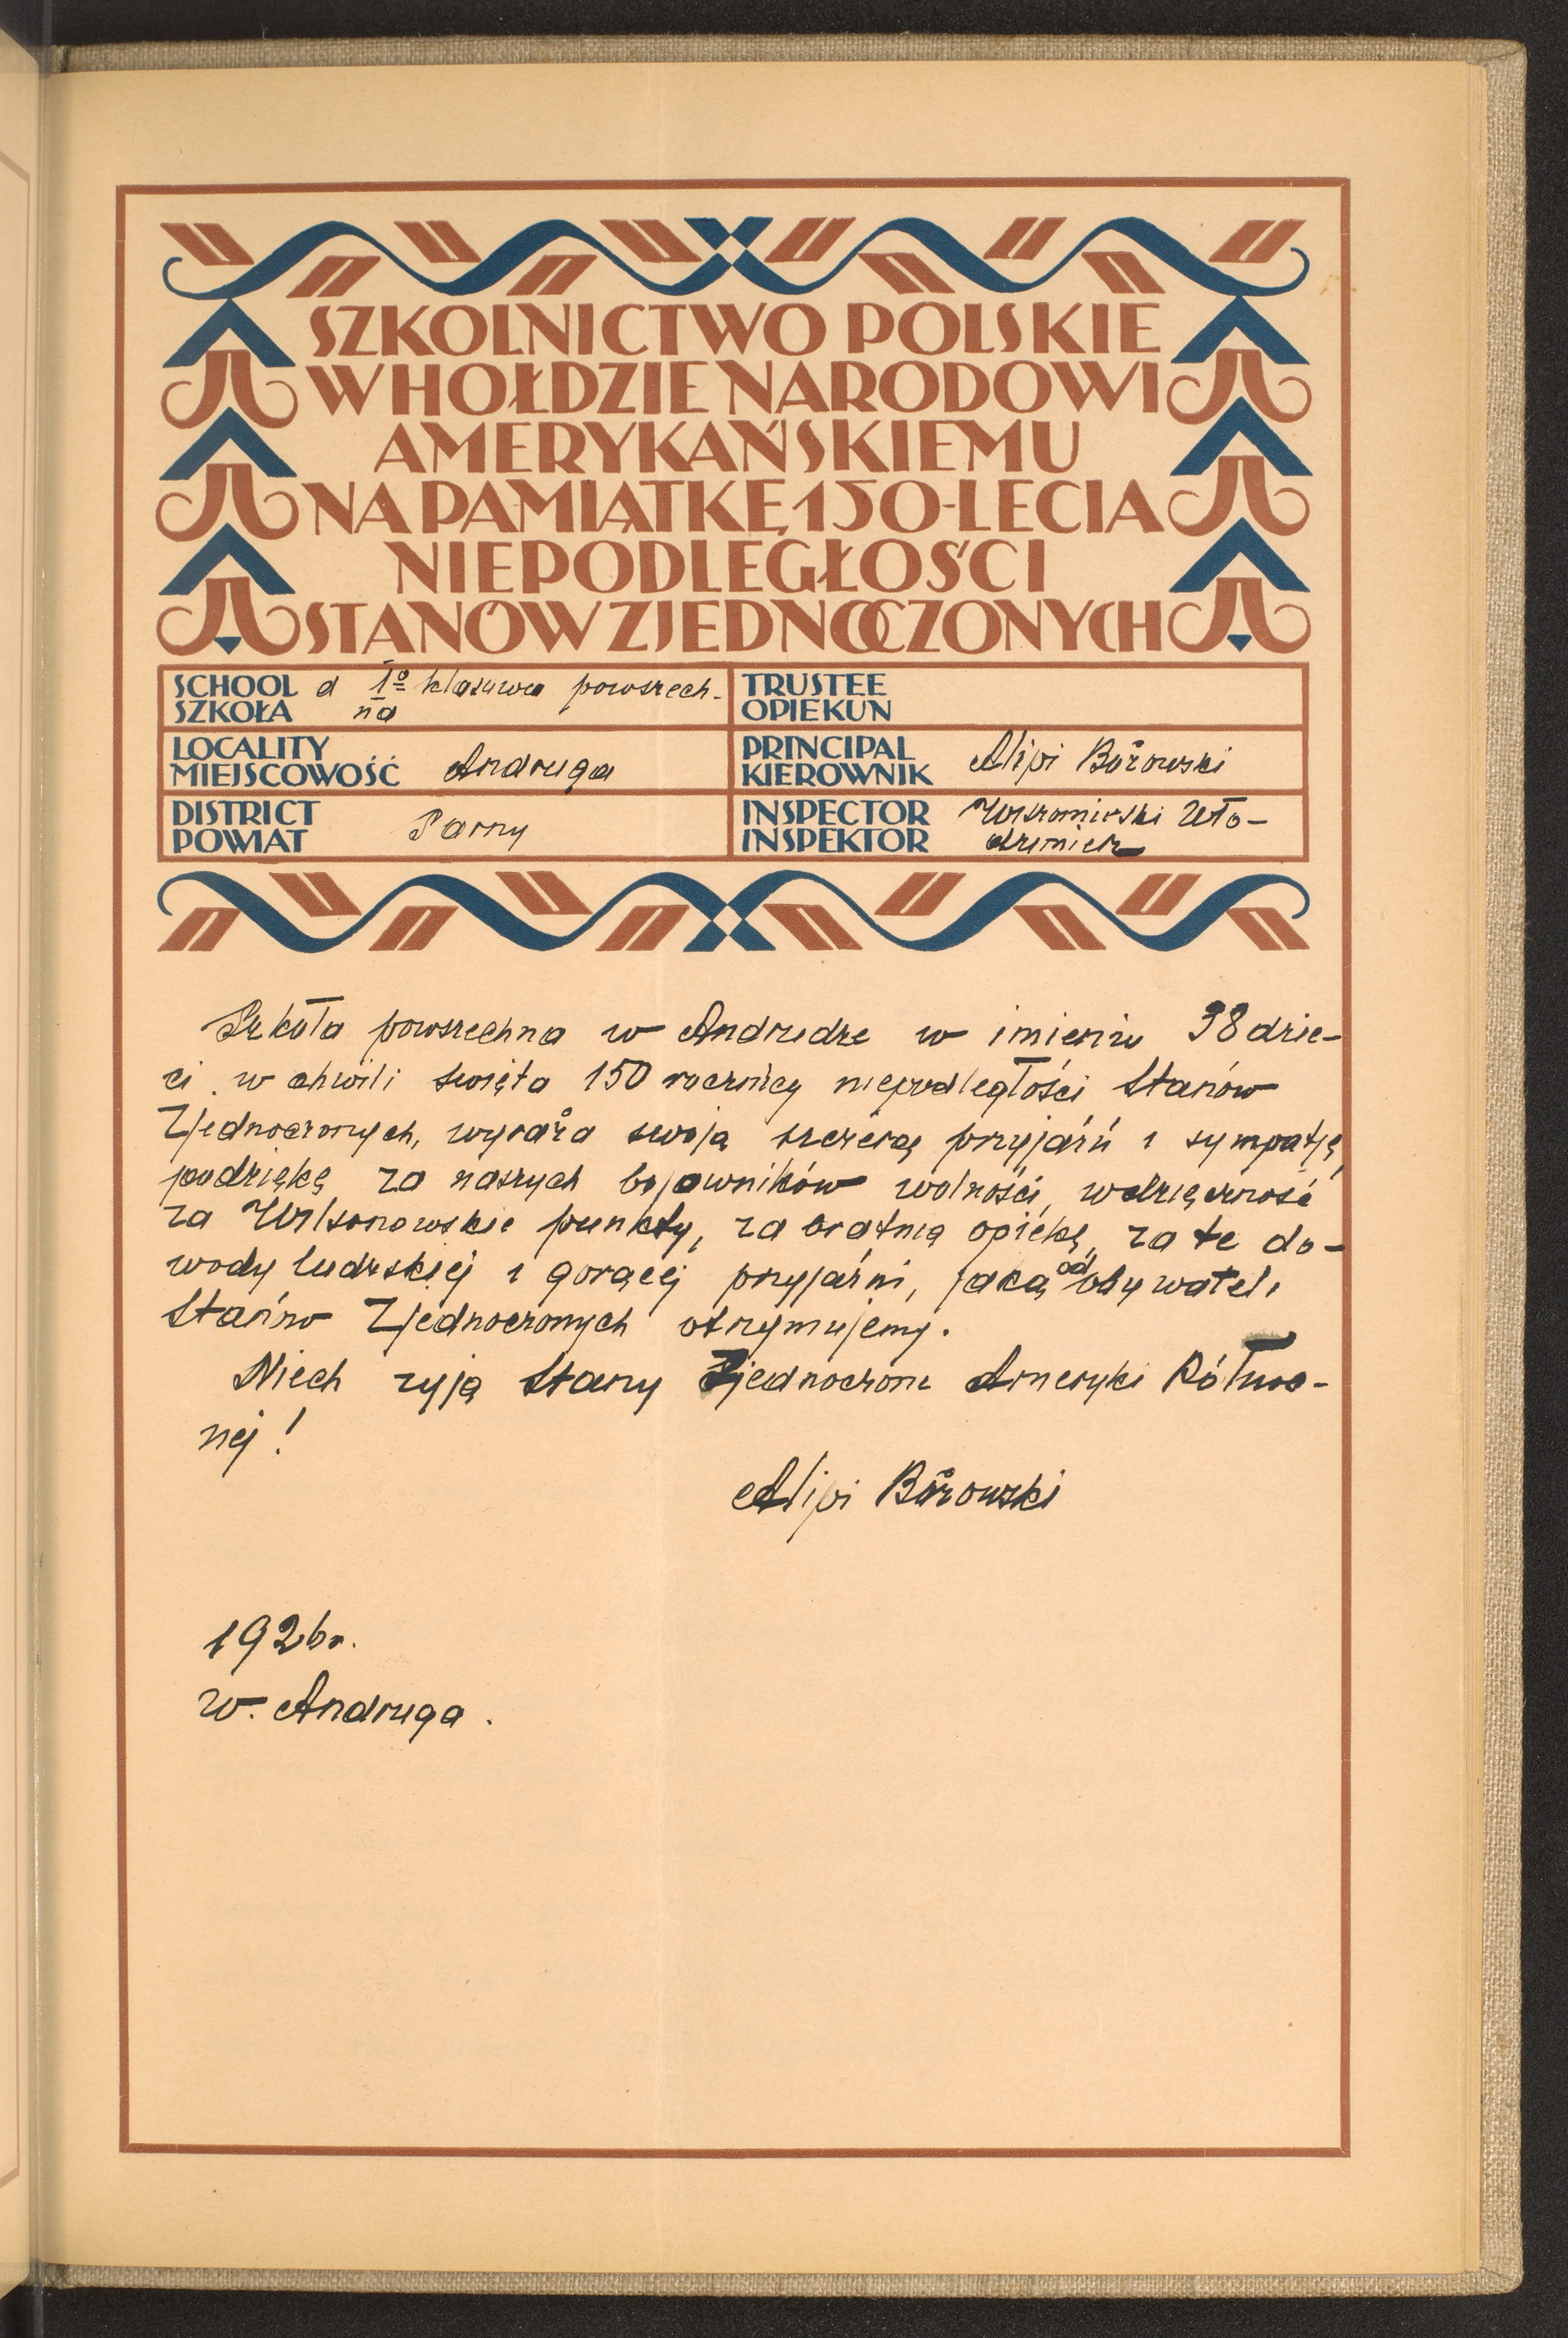 SZKOLNICTWO POLSKIE
W HOŁDZIE NARODOWI
AMERYKAŃSKIEMU
NA PAMIĄTKĘ 150-LECIA
NIEPODLEGŁOŚCI
STANÓW ZJEDNOCZONYCH
SCHOOL
SZKOŁA
a 1º klasowa powszech-
na
TRUSTEE
OPIEKUN
LOCALITY
MIEJSCOWOŚĆ
Andruga
PRINCIPAL
KIEROWNIK
Alipi Bůrowski
DISTRICT
POWIAT
Sarny
INSPECTOR
INSPEKTOR
Wło-
dzimierz
Szkoła powszechna w Andrudze w imieniu 98 dzie-
ci w chwili święta 150 rocznicy niepodległości Stanów
Zjednoczonych, wyraża swoją szczerą przyjaźń i sympatję,
podziękę za naszych bojowników wolności, wdzięczność
za Wilsonowskie punkty, za bratnią opiekę, za te do-
wody ludzskiej i gorącej przyjaźni, jaką od obywateli
Stanów Zjednoczonych otrzymujemy.
Niech żyją Stany Zjednoczone Ameryki Północ-
nej!
Alipi Bůrowski
1926 r.
w. Andruga.